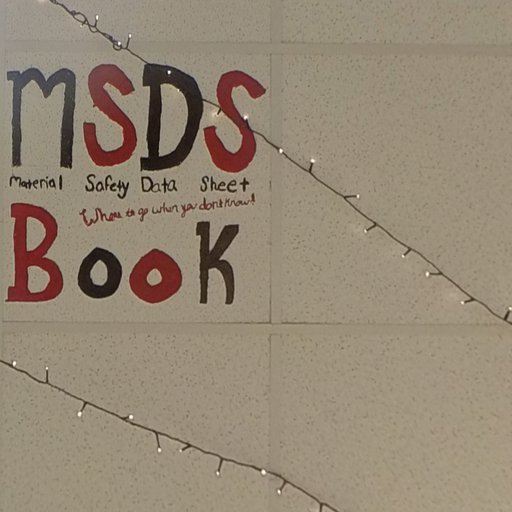 MSDS
Material Safety Data Sheet
Where to go when you don't know!
Book